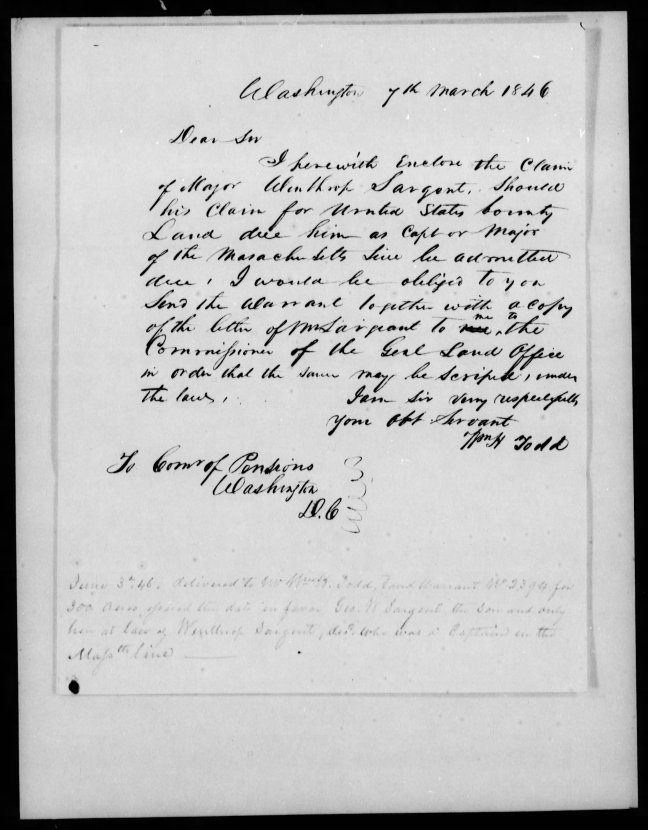 Washington 7th March 1846
Dear Sir
I herewith Enclose the Claim
of Major Winthrop Sargent. Should
his Claim for United States bounty
Land due him as Capt or Major
of the Masachusetts Line be admitted
due, I would be obliged to you
Send the Warrant together with a copy
of the letter of Mr Sargeant to me to the
Commissioner of the Genl Land Office
in order that the same may be Scriped, under
the laws,
I am Sir very respectfully
your Obt Servant
Wm H Todd
To Comr of Pensions
Washington
D.C
June 3d 46. delivered to Mr Wm H. Todd, Land Warrant No 2394 for
300 Acres, issued this date in favor Geo. W Sargent the Son and only
heir at law of Winthrop Sargent, decd. who was a Captain in the
Massts line